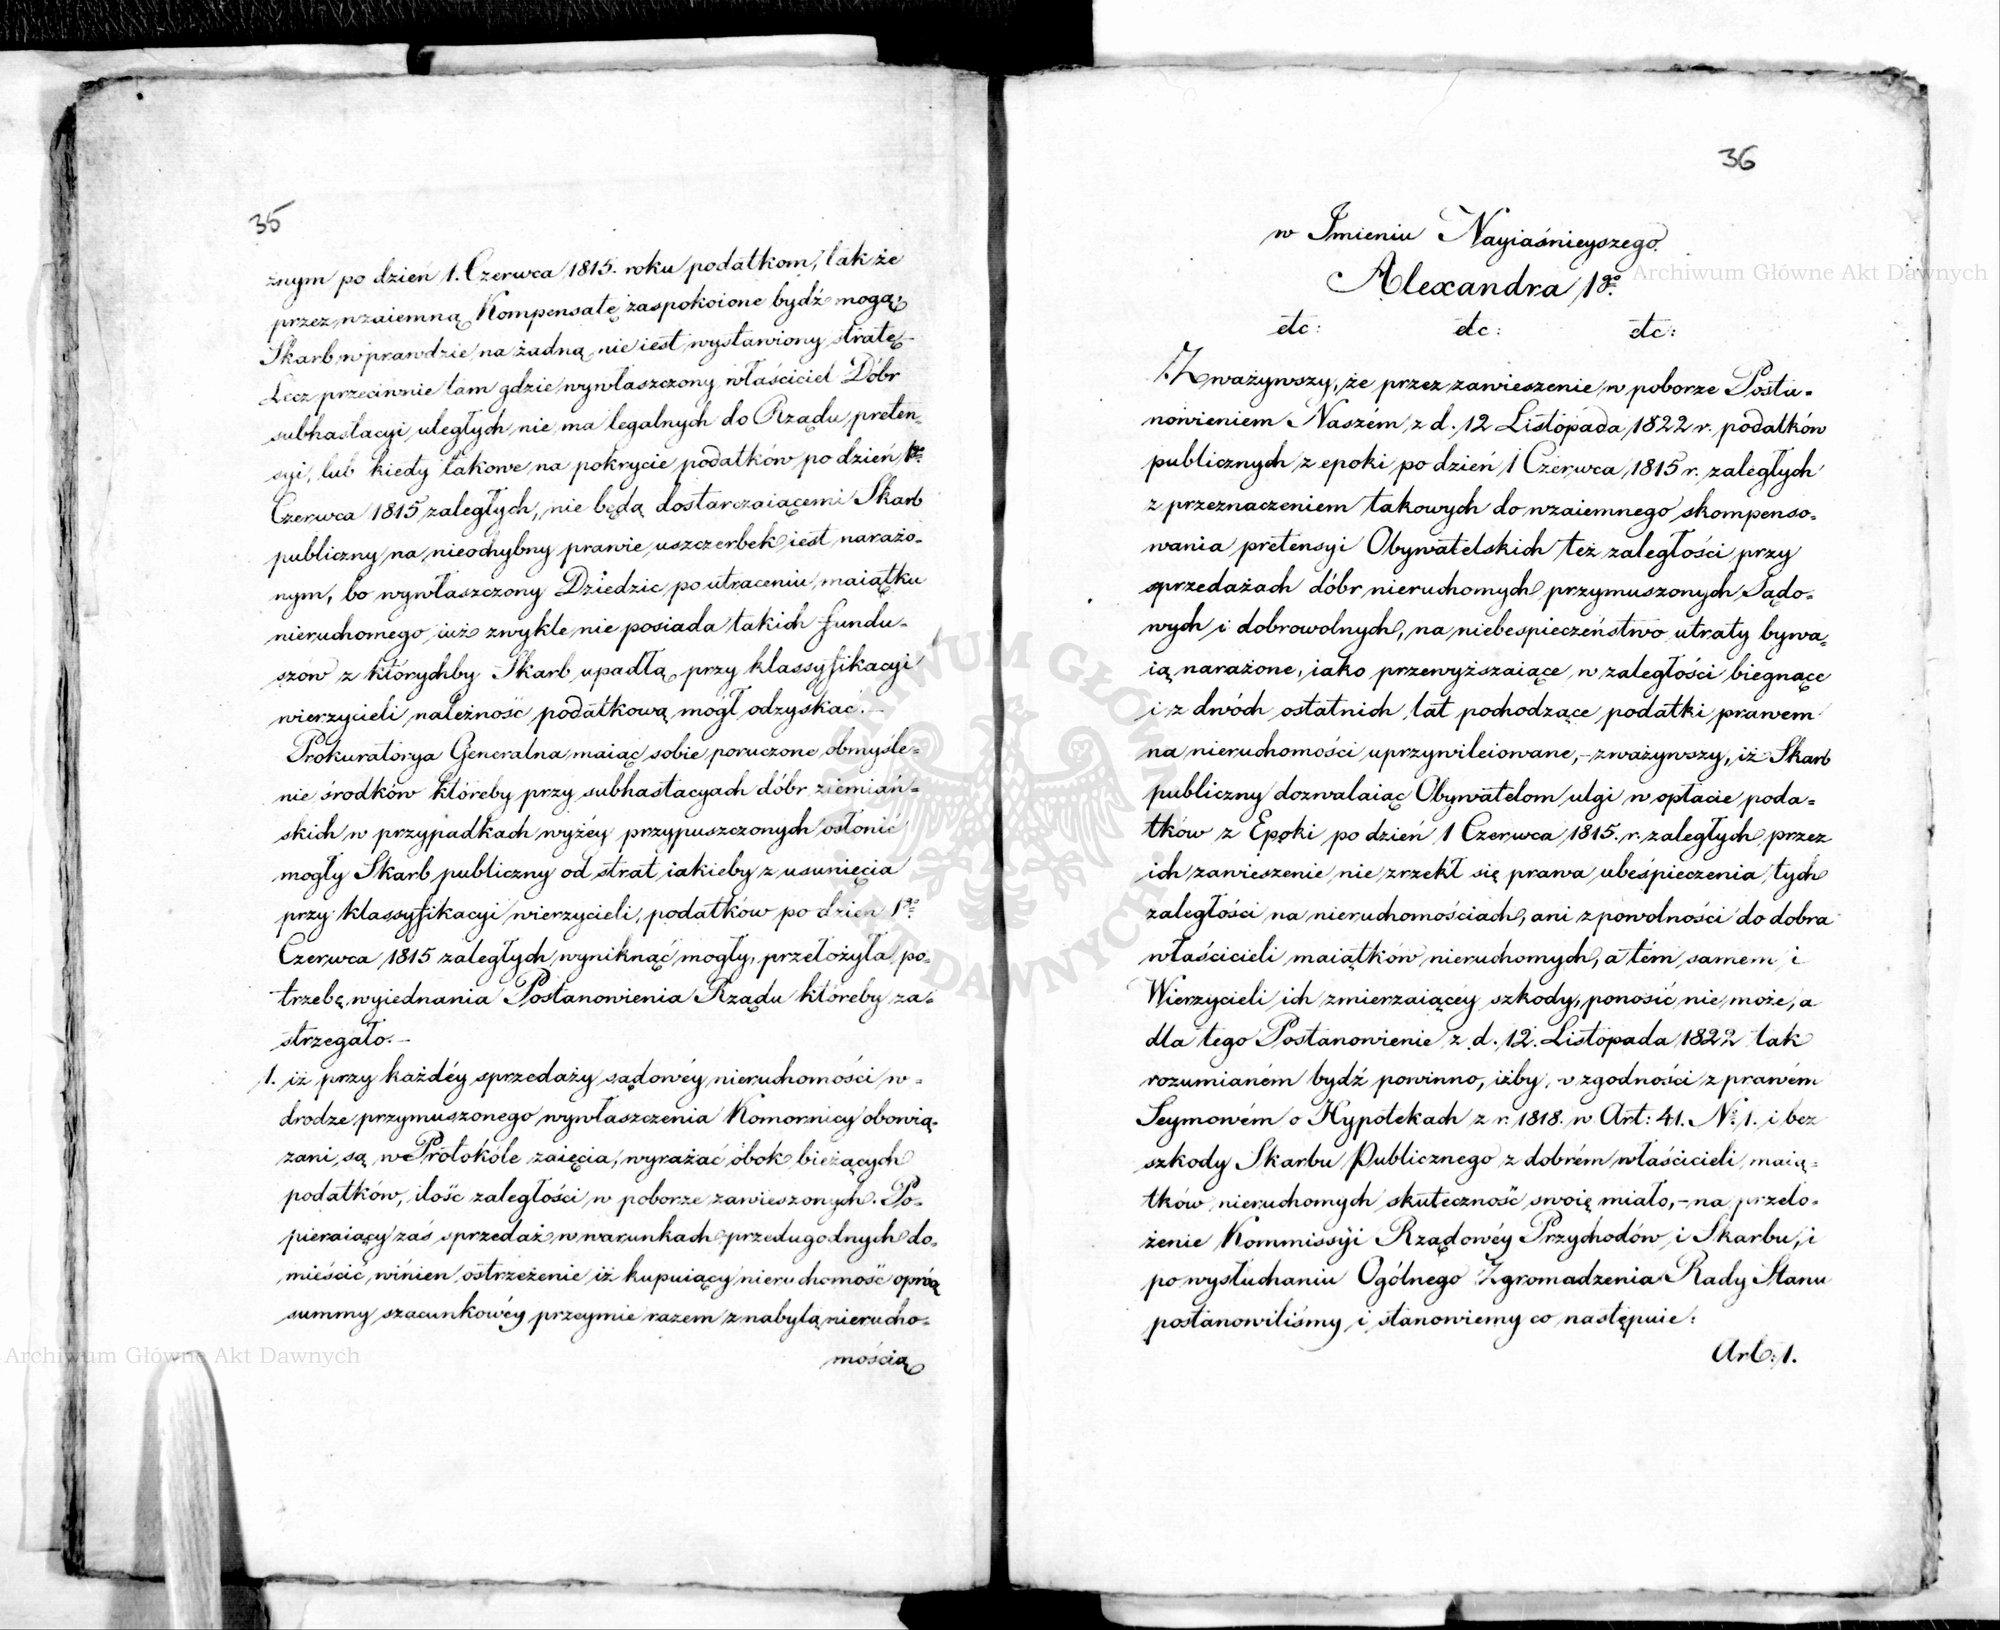 35
żnym po dzień 1. Czerwca 1815. roku podatkom, tak że
przez wzaiemną Kompensatę zaspokoione bydź mogą,
Skarb wprawdzie na żadną nie iest wystawiony stratę
Lecz przeciwnie tam gdzie wywłaszczony właściciel Dóbr
subhastacyi uległych nie ma legalnych do Rządu preten-
syi, lub kiedy takowe na pokrycie podatków po dzień 1go
Czerwca 1815 zaległych, nie będą dostarczaiącemi Skarb
publiczny na nieochybny prawie uszczerbek iest narażo-
nym, bo wywłaszczony Dziedzic po utraceniu maiątku
nieruchomego iuż zwykle nie posiada takich fundu-
szów z którychby Skarb upadłą przy klassyfikacyi
wierzycieli należność podatkową mógł odzyskać.
Prokuratorya Generalna maiąc sobie poruczone obmyśle-
nie środków któreby przy subhastacyach dóbr ziemiań-
skich w przypadkach wyżéy przypuszczonych osłonić
mogły Skarb publiczny od strat iakieby z usunięcia
przy klassyfikacyi wierzycieli, podatków po dzień 1go
Czerwca 1815 zaległych wyniknąć mogły, przełożyła po-
trzebę wyiednania Postanowienia Rządu któreby za-
strzegało.
1. iż przy każdéy sprzedaży sądowéy nieruchomości w-
drodze przymuszonego wywłaszczenia Komornicy obowią-
zani są w Protokóle zaięcia, wyrażać obok bieżących
podatków, ilość zaległości w poborze zawieszonych. Po-
pieraiący zaś sprzedaż w warunkach przedugodnych do-
mieścić winien ostrzeżenie iż kupuiący nieruchomość oprócz
summy szacunkowéy przeymie razem z nabytą nierucho-
mością
36
w Imieniu Nayiaśnieyszego
Alexandra 1go
etc: etc: etc:
Zważywszy, że przez zawieszenie w poborze Posta-
nowieniem Naszém z d. 12 Listopada 1822 r. podatków
publicznych z epoki po dzień 1 Czerwca 1815 r. zaległych
z przeznaczeniem takowych do wzaiemnego skompenso-
wania pretensyi Obywatelskich też zaległości przy
sprzedażach dóbr nieruchomych przymuszonych Sądo-
wych i dobrowolnych, na niebespieczeństwo utraty bywa-
ią narażone, iako przewyższaiące w zaległości biegnące
i z dwóch ostatnich lat pochodzące podatki prawem
na nieruchomości uprzywileiowane, - zważywszy, iż Skarb
publiczny dozwalaiąc Obywatelom ulgi w opłacie poda-
tków z Epoki po dzień 1 Czerwca 1815. r. zaległych przez
ich zawieszenie nie zrzekł się prawa ubeśpieczenia tych
zaległości na nieruchomościach, ani z powolności do dobra
właścicieli maiątków nieruchomych, a tém samem i
Wierzycieli ich zmierzaiącéy szkody, ponosić nie może, a
dla tego Postanowienie z d. 12. Listopada 1822 tak
rozumianém bydź powinno, iżby w zgodności z prawém
Seymowém o Hypotekach z r. 1818. w Art: 41. No. 1. i bez
szkody Skarbu Publicznego z dobrém właścicieli maią-
tków nieruchomych skuteczność swoię miało, - na przeło-
żenie Kommissyi Rządowéy Przychodów i Skarbu, i
po wysłuchaniu Ogólnego Zgromadzenia Rady Stanu
postanowiliśmy i stanowiemy co następuie:
Art: 1.
Archiwum Główne Akt Dawnych
Archiwum Główne Akt Dawnych
ARCHIWUM GŁÓWNE AKT DAWNYCH